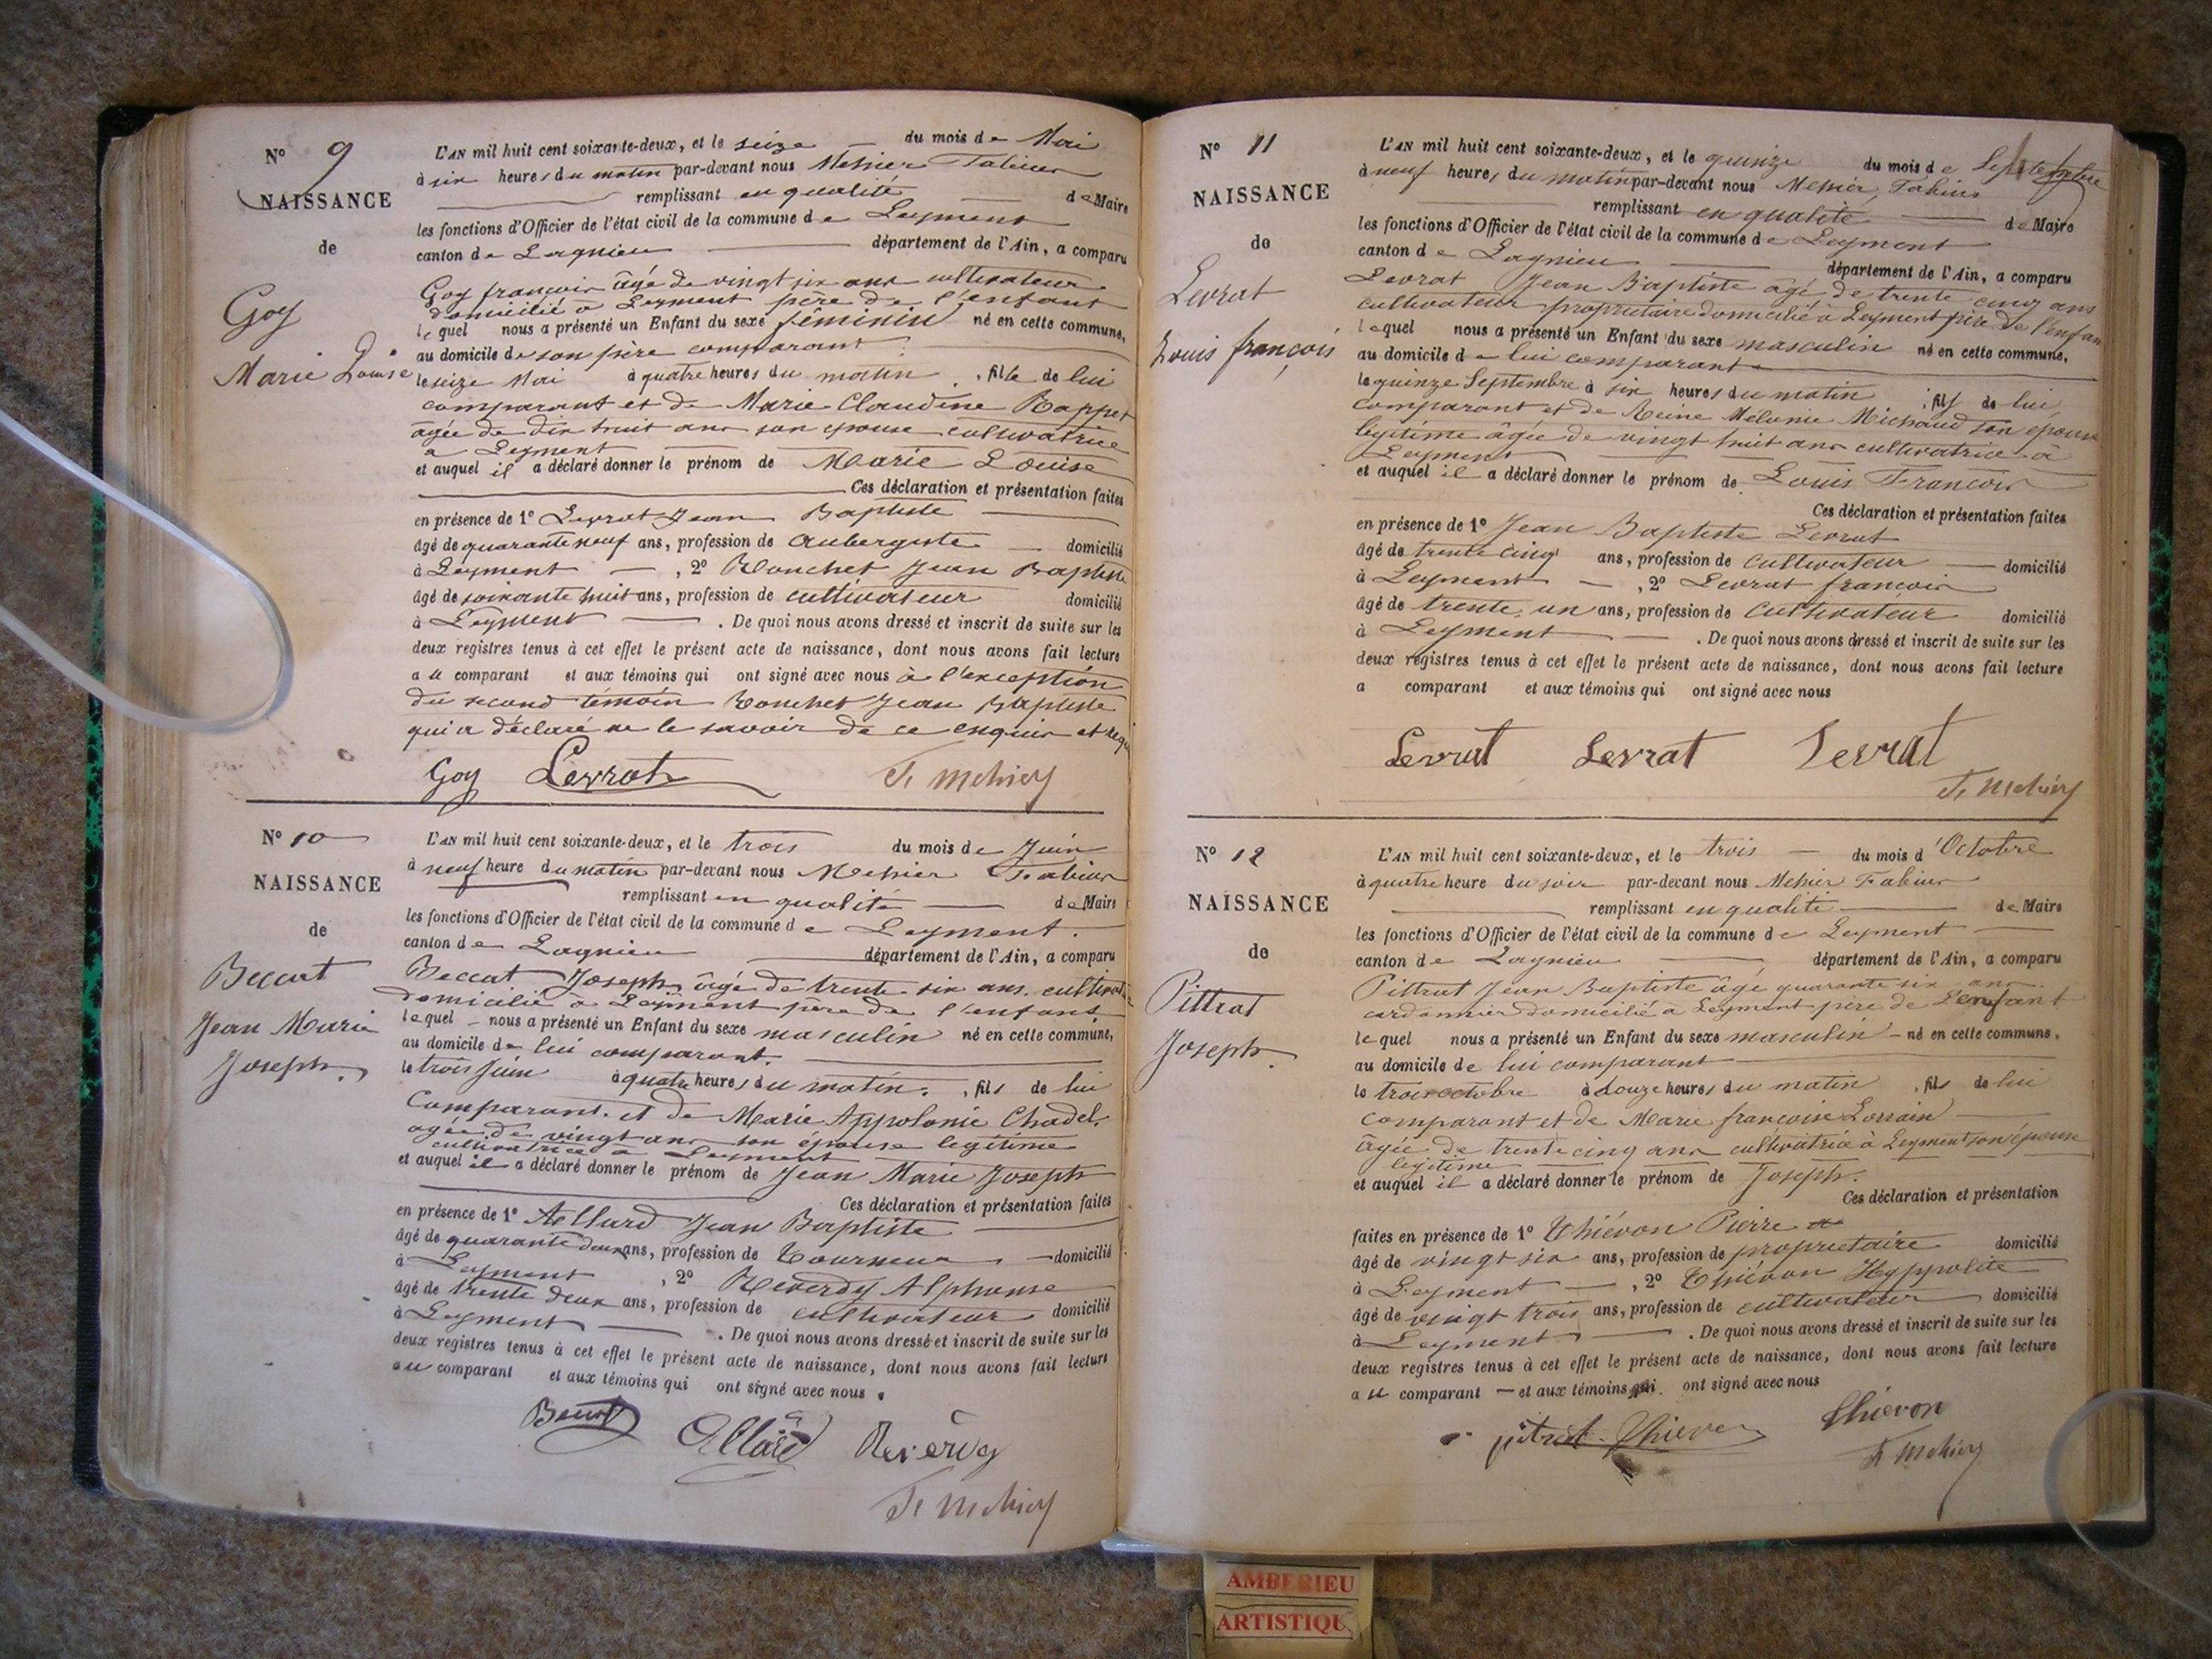 N° 9
NAISSANCE
de
Goy
Marie Louise
L'AN mil huit cent soixante-deux, et le seize du mois de Mai
à six heures du matin par-devant nous Messier Fabius
remplissant en qualité de Maire
les fonctions d'Officier de l'état civil de la commune de Leyment
canton de Lagnieu département de l'Ain, a comparu
Goy françois âgé de vingt six ans cultivateur
domicilié à Leyment père de l'enfant
lequel nous a présenté un Enfant du sexe féminin né en cette commune,
au domicile de son père comparant
le seize Mai à quatre heures du matin, fille de lui
comparant et de Marie Claudine Rappet
agée de dix huit ans son epouse cultivatrice
a Leyment
et auquel il a déclaré donner le prénom de Marie Louise
Ces déclaration et présentation faites
en présence de 1° Levrat Jean Baptiste
âgé de quarante neuf ans, profession de Aubergiste domicilié
à Leyment, 2° Bouchet Jean Baptiste
âgé de soixante huit ans, profession de cultivateur domicilié
à Leyment. De quoi nous avons dressé et inscrit de suite sur les
deux registres tenus à cet effet le présent acte de naissance, dont nous avons fait lecture
au comparant et aux témoins qui ont signé avec nous à l'exception
du second témoin Bouchet Jean Baptiste
qui a déclaré ne le savoir de ce enquis et requis
Goy Levrat
N° 10
NAISSANCE
de
Beccat
Jean Marie
Joseph.
L'AN mil huit cent soixante-deux, et le trois du mois de Juin
à neuf heure du matin par-devant nous Messier Fabius
remplissant en qualité de Maire
les fonctions d'Officier de l'état civil de la commune de Leyment.
canton de Lagnieu département de l'Ain, a comparu
Beccat Joseph âgé de trente six ans cultivateur
domicilié à Leyment père de l'enfant
lequel nous a présenté un Enfant du sexe masculin né en cette commune,
au domicile de lui comparant.
le trois Juin à quatre heures du matin, fils de lui
comparant et de Marie Appolonie Chadel
agée de vingt ans son épouse legitime
cultivatrice à Leyment
et auquel il a déclaré donner le prénom de Jean Marie Joseph
Ces déclaration et présentation faites
en présence de 1° Allard Jean Baptiste
âgé de quarante deux ans, profession de Tourneur domicilié
à Leyment, 2° Reverdy Alphonse
âgé de trente deux ans, profession de cultivateur domicilié
à Leyment. De quoi nous avons dressé et inscrit de suite sur les
deux registres tenus à cet effet le présent acte de naissance, dont nous avons fait lecture
au comparant et aux témoins qui ont signé avec nous.
Allard
N° 11
NAISSANCE
de
Levrat
Louis françois
L'AN mil huit cent soixante-deux, et le quinze du mois de Septembre
à neuf heures du matin par-devant nous Messier Fabius
remplissant en qualité de Maire
les fonctions d'Officier de l'état civil de la commune de Leyment
canton de Lagnieu département de l'Ain, a comparu
Levrat Jean Baptiste agé de trente cinq ans
cultivateur propriétaire domicilié à Leyment père de l'enfant
lequel nous a présenté un Enfant du sexe masculin né en cette commune,
au domicile de lui comparant
le quinze Septembre à six heures du matin, fils de lui
comparant et de Reine Mélanie Michaud son épouse
légitime âgée de vingt huit ans cultivatrice à
Leyment
et auquel il a déclaré donner le prénom de Louis François
Ces déclaration et présentation faites
en présence de 1° Jean Baptiste Levrat
âgé de trente cinq ans, profession de cultivateur domicilié
à Leyment, 2° Levrat françois
âgé de trente un ans, profession de cultivateur domicilié
à Leyment. De quoi nous avons dressé et inscrit de suite sur les
deux registres tenus à cet effet le présent acte de naissance, dont nous avons fait lecture
a comparant et aux témoins qui ont signé avec nous
Levrat Levrat Levrat
N° 12
NAISSANCE
de
Pittrat
Joseph.
L'AN mil huit cent soixante-deux, et le trois du mois d'Octobre
à quatre heure du soir par-devant nous Messier Fabius
remplissant en qualité de Maire
les fonctions d'Officier de l'état civil de la commune de Leyment
canton de Lagnieu département de l'Ain, a comparu
Pittrat Jean Baptiste âgé quarante six ans
cordonnier domicilié à Leyment père de l'enfant
lequel nous a présenté un Enfant du sexe masculin né en cette commune.
au domicile de lui comparant
le trois octobre à douze heures du matin, fils de lui
comparant et de Marie françoise Lorrain
âgée de trente cinq ans cultivatrice à Leyment son épouse
légitime
et auquel il a déclaré donner le prénom de Joseph.
Ces déclaration et présentation
faites en présence de 1° Thiévon Pierre
âgé de vingt six ans, profession de propriétaire domicilié
à Leyment, 2° Thiévon Hyppolite
âgé de vingt trois ans, profession de cultivateur domicilié
à Leyment. De quoi nous avons dressé et inscrit de suite sur les
deux registres tenus à cet effet le présent acte de naissance, dont nous avons fait lecture
au comparant et aux témoins qui ont signé avec nous
Thievon
AMBERIEU
ARTISTIQU